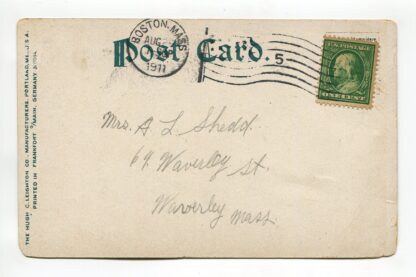 Post Card.
BOSTON, MASS.
AUG
1911
5
U.S. POSTAGE
ONE CENT
Mrs. A L Shedd.
69 Waverley St.
Waverley Mass.
THE HUGH C. LEIGHTON CO., MANUFACTURERS, PORTLAND, ME., U.S.A.
PRINTED IN FRANKFORT O/MAIN, GERMANY